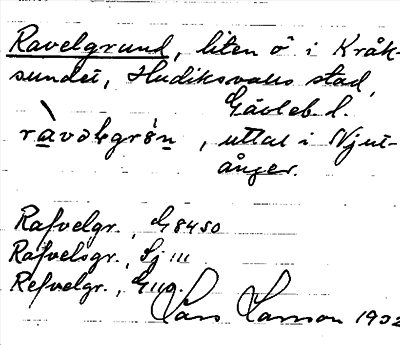 Ravelgrund, liten ö i Kråk-
sundet, Hudiksvalls stad,
Gävleb. l.
uttal i Njut-
ånger.
Rafvelgr., G 8450
Rafvelsgr., Sj 111
Refvelgr., G 119.
Lars Larsson 1932